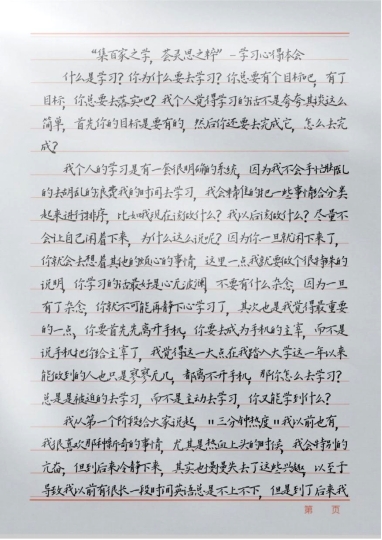 “集百家之学,荟灵思之粹”-学习心得体会
什么是学习?你为什么要去学习?你总要有个目标吧,有了
目标,你总要去落实吧?我个人觉得学习的话不是夸夸其谈这么
简单,首先你的目标是要有的,然后你还要去完成它,怎么去完
成?
我个人的学习是有一套很明确的系统,因为我不会手忙脚乱
的去胡乱的浪费我的时间去学习,我会特定的把一些事情给分类
起来进行排序,比如我现在该做什么?我以后该做什么?尽量不
会让自己闲着下来,为什么这么说呢?因为你一旦就闲下来了,
你就会去想着其他的烦心的事情,这里一点我就要做个很特来的
说明,你学习的话最好是心无波澜,不要有什么杂念,因为一旦
有了杂念,你就不可能再静下心学习了,其次也是我觉得最重要
的一点,你要首先先离开手机,你要去成为手机的主宰,而不是
说手机把你给主宰了,我觉得这一大点在我踏入大学这一年以来
能做到的人也只是寥寥无几,都离不开手机,那你怎么去学习?
总是是被迫的去学习,而不是主动去学习,你又能学到什么?
我从第一个阶段给大家说起,"三分钟热度"我以前也有,
我很喜欢那种新奇的事情,尤其是热血上头的时候,我会特别的
亢奋,但到后来冷静下来,其实也慢慢失去了这些兴趣,以至于
导致我以前有很长一段时间英语总是不上不下,但是到了后来我
第 页